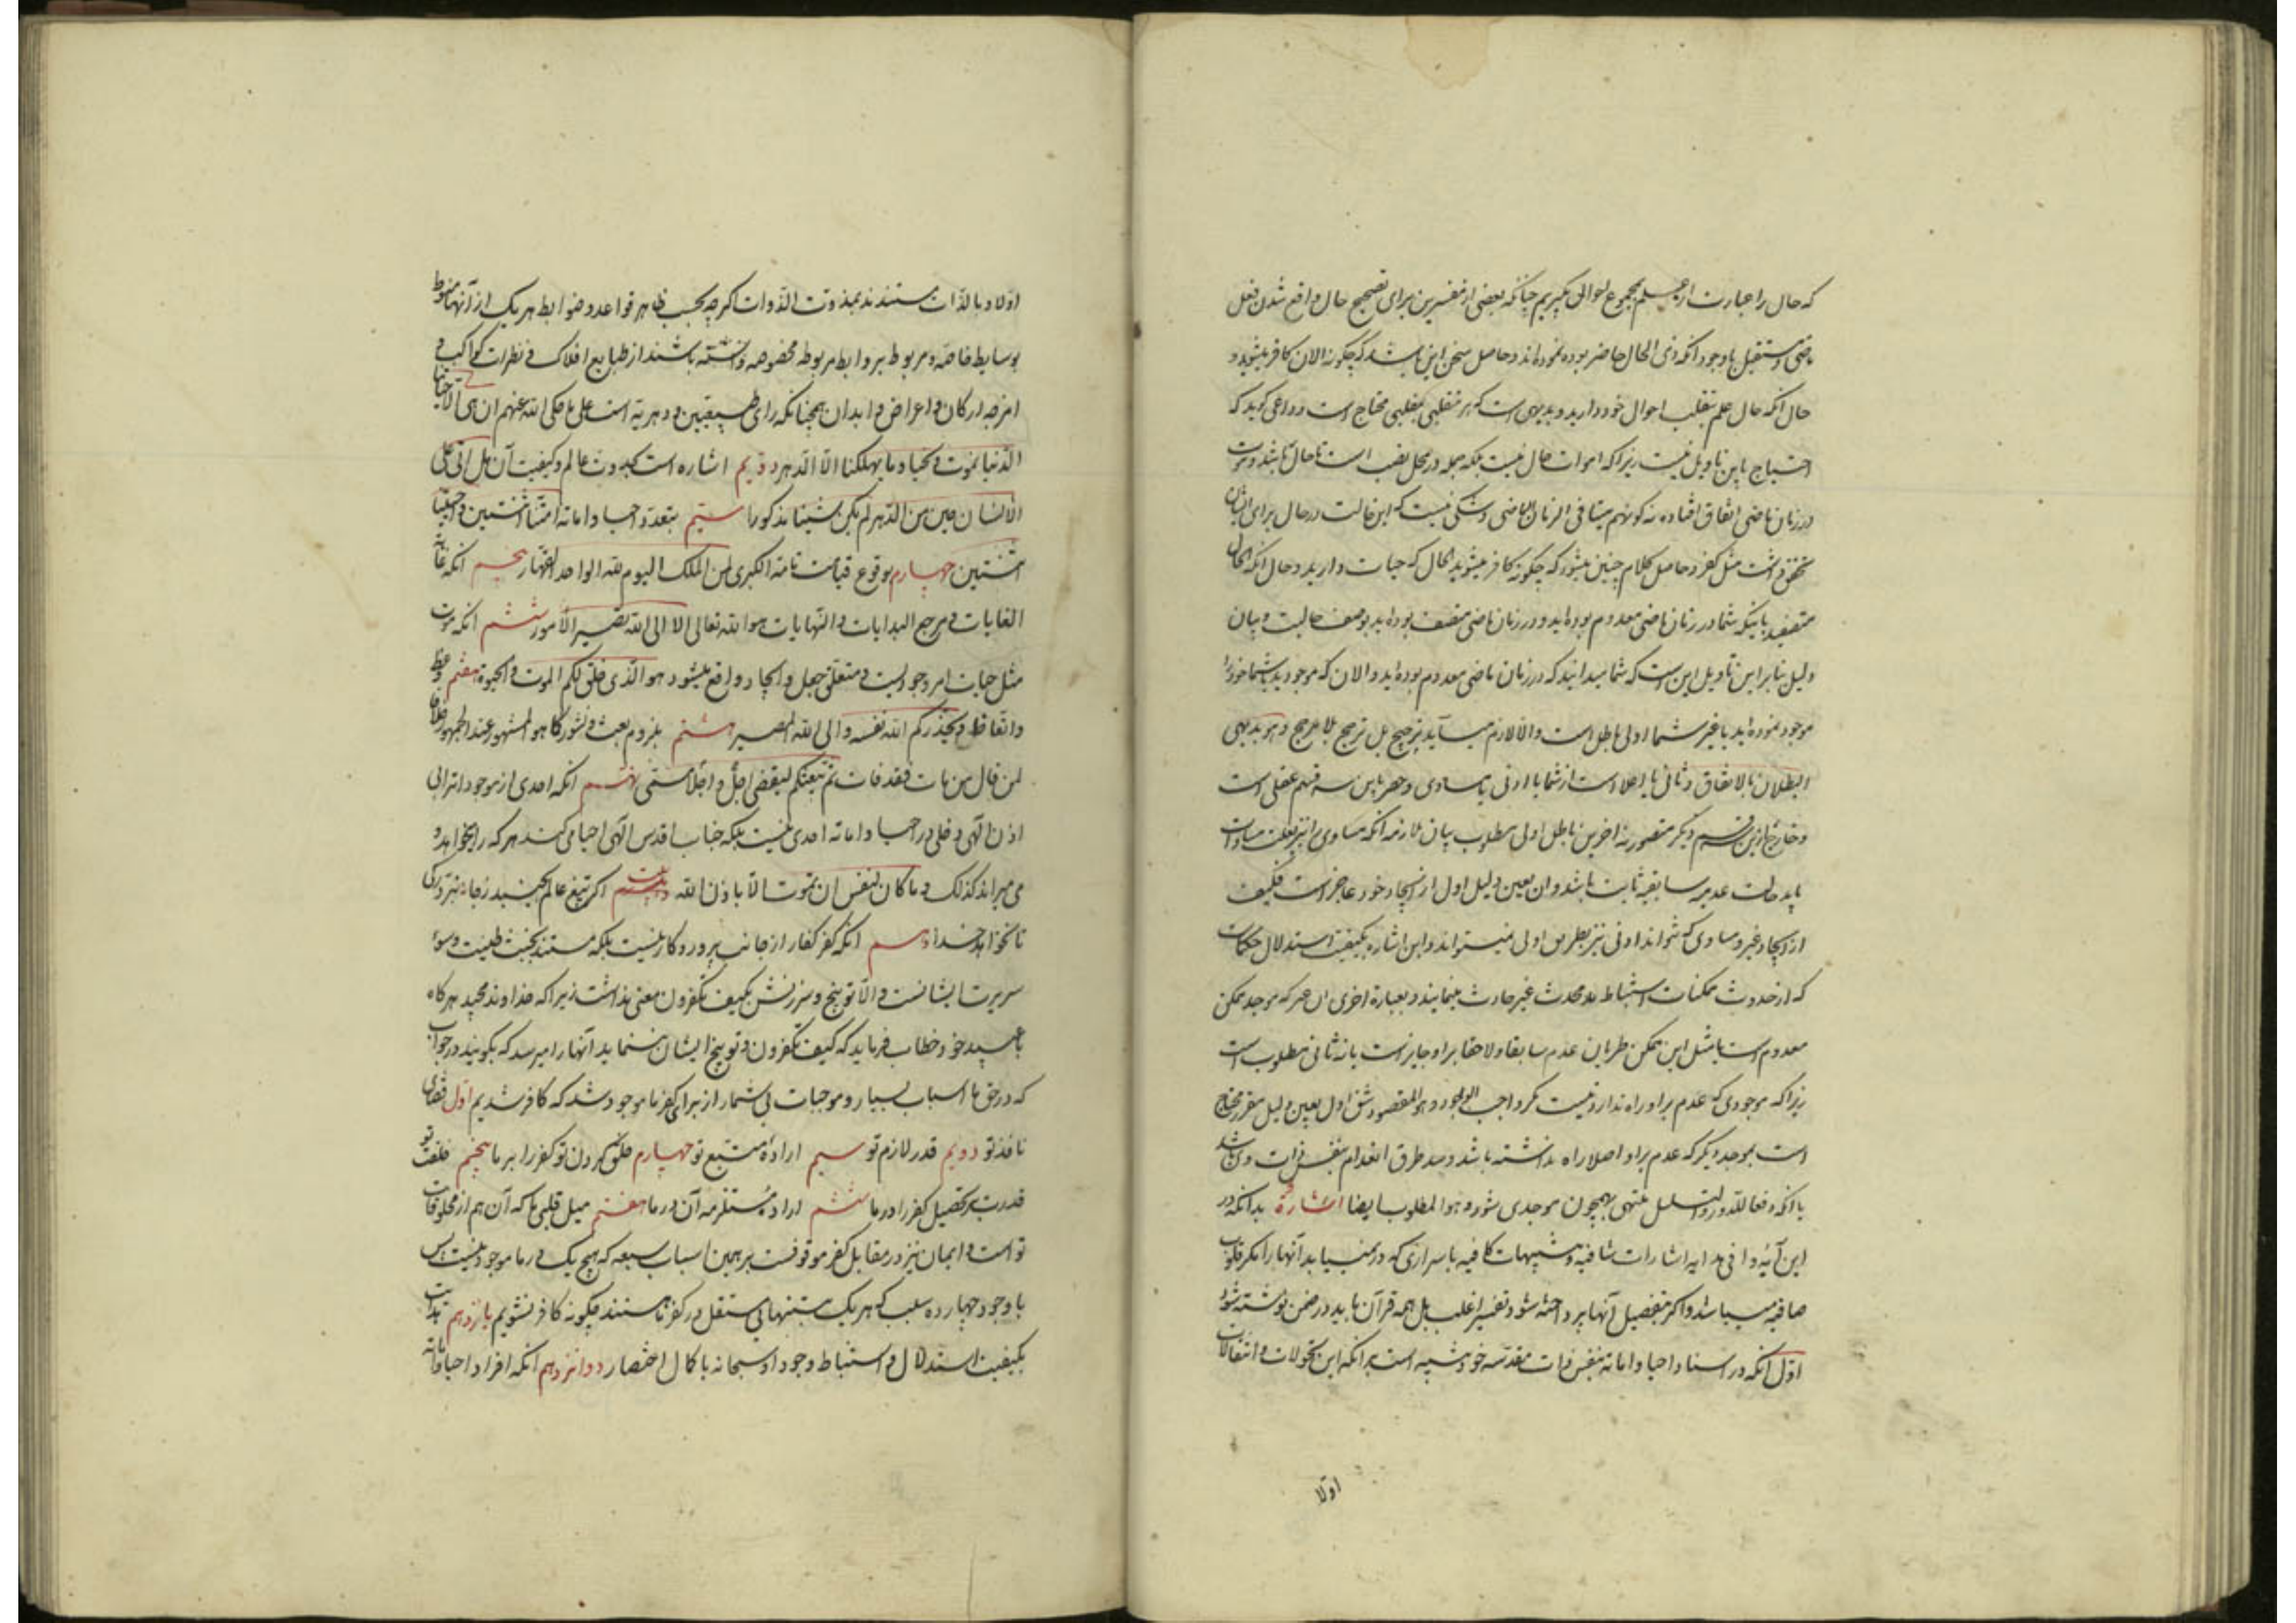 که حال را عبارت از علم بمجموع احوال بگیریم چنانکه بعضی از مفسرین برای تصحیح حال واقع شدن فعل
ماضی و مستقبل با وجود آنکه ذی الحال حاضر بوده نموده‌اند و حاصل سخن این باشد که چگونه الان کافر میشوید و
حال آنکه حال علم بتقلب احوال خود دارید و بدیهی است که هر متقلبی بمقلبی محتاج است و داعی گوید که
احتیاج باین تاویل نیست زیرا که اموات حال نیست بلکه جمله در محل نصب است تا حال باشد و موت
در زمان ماضی اتفاق افتاده نه کونهم میتا فی الزمان الماضی و شکی نیست که این حالت در حال برای ایشان
تحقق داشت مثل کفر و حاصل کلام چنین میشود که چگونه کافر میشوید الحال که حیات دارید و حال آنکه الحال
متصفید باینکه شما در زمان ماضی معدوم بوده‌اید و در زمان ماضی متصف بوده‌اید بوصف حالیت و بیان
دلیل بنا بر این تاویل این است که شما میدانید که در زمان ماضی معدوم بوده‌اید و الان که موجودید شما خود را
موجود نموده‌اید یا غیر شما اولی باطل است و الا لازم میآید ترجیح بل ترجح بلا مرجح و هو بدیهی
البطلان بالاتفاق و ثانی یا اعلا است از شما یا ادنی یا مساوی و حصر باین سه قسم عقلی است
و خارج ازین قسم دیگر متصور نه اخرین باطل اولی مطلوب بیان ملازمه آنکه مساوی را نیز بعلت مساوات
باید حالت عدمیه سابقیه ثابت باشد و ان بعین دلیل اول از ایجاد خود عاجز است فکیف
از ایجاد غیر و مساوی که نتواند ادنی نیز بطریق اولی نمیتواند و این اشاره بکیفیت استدلال حکماست
که از حدوث ممکنات استنباط بد محدث غیر حادث مینمایند و بعبارة اخری ان غیر که موجد ممکن
معدوم است یا مثل این ممکن طریان عدم سابقا و لاحقا بر او جایز است یا نه ثانی مطلوب است
زیرا که موجودی که عدم بر او راه ندارد نیست مگر واجب الوجود و هو المقصود و شق اول بعین دلیل مقرر محتاج
است بموجد دیگر که عدم بر او اصلا راه نداشته باشد و سد طرق انعدام بنفس ذات وی باشد
یا آنکه دفعا للدور و التسلسل منتهی بهمچون موجدی شود و هو المطلوب ایضا اشارة بدانکه در
این آیهٔ وافی هدایه اشارات شافیه و تنبیهات کافیه باسراری که در نمییابد آنها را مگر قلوب
صافیه میباشد و اگر بتفصیل آنها پرداخته شود تفسیر اغلب بل همه قرآن باید در ضمن نوشته شود
اول آنکه در اسناد احیا و اماته بنفس ذات مقدسه خود تنبیه است بر آنکه این تحولات و انتقالات
اولا
اولا و بالذات مستندند بمذوت الذوات اگرچه بحسب ظاهر قواعد و ضوابط هر یک از آنها منوط
بوسایط خاصه و مربوط بروابط مربوطه مخصوصه دانسته باشند از طبایع افلاک و نظرات کواکب و
امزجه ارکان و اعراض و ابدان همچنانکه رای طبیعیین و دهریه است علی ما حکی الله عنهم ان هی الا حیاتنا
الدنیا نموت و نحیا و ما یهلکنا الا الدهر دویم اشاره است بحدوث عالم و کیفیت آن هل اتی علی
الانسان حین من الدهر لم یکن شیئا مذکورا سیّم بتعدد احیا و اماته امتنا اثنتین و احییتنا
اثنتین چهارم بوقوع قیامت تامه الکبری لمن الملک الیوم لله الواحد القهار پنجم آنکه غایة
الغایات و مرجع البدایات و النهایات هو الله تعالی الا الی الله تصیر الامور ششم آنکه موت
مثل حیات امر وجودیست و متعلق جعل و ایجاد واقع میشود هو الذی خلق لکم الموت و الحیوة هفتم وعظ
و اتعاظ و یحذرکم الله نفسه و الی الله المصیر هشتم بلزوم بعث و نشور کما هو المشهور عند الجمهور خلافا
لمن قال من مات فقد فات ثم یبعثکم لیقضی اجل و اجلا مسمی نهم آنکه احدی از موجودات را بی
اذن الهی دخلی در احیا و اماته احدی نیست بلکه جناب اقدس الهی احیا می کند هر که را میخواهد و
می میراند کذلک و ما کان لنفس ان تموت الا باذن الله بیت اگر تیغ عالم بجنبد ز جای نبرد رگی
تا نخواهد خدای دهم آنکه کفر کفار از جانب پروردگار نیست بلکه مستند بخبث طینت و سوء
سریرت ایشانست و الا توبیخ و سرزنش بکیف تکفرون معنی نداشت زیرا که خداوند مجید هرگاه
با عبید خود خطاب فرماید که کیف تکفرون و توبیخ ایشان بنماید آنها را میرسد که بگویند در جواب
که در حق ما اسباب بسیار و موجبات بی شمار از برای کفر ما موجود شد که کافر شدیم اول قضای
نافذ تو دویم قدر لازم تو سیم ارادهٔ متبع تو چهارم خلق کردن تو کفر را بر ما پنجم خلقت تو
قدرت بر تحصیل کفر را در ما ششم ارادهٔ مستلزمه آن در ما هفتم میل قلبی ما که آن هم از مخلوقات
تو است و ایمان نیز در مقابل کفر موقوفست بر همین اسباب سبعه که هیچ یک در ما موجود نیست پس
با وجود چهارده سبب که هر یک بتنهائی مستقل در کفر ما هستند چگونه کافر نشویم یازدهم هدایت
بکیفیت استدلال و استنباط وجود او سبحانه با کمال اختصار دوازدهم آنکه افراد احیا و اماته